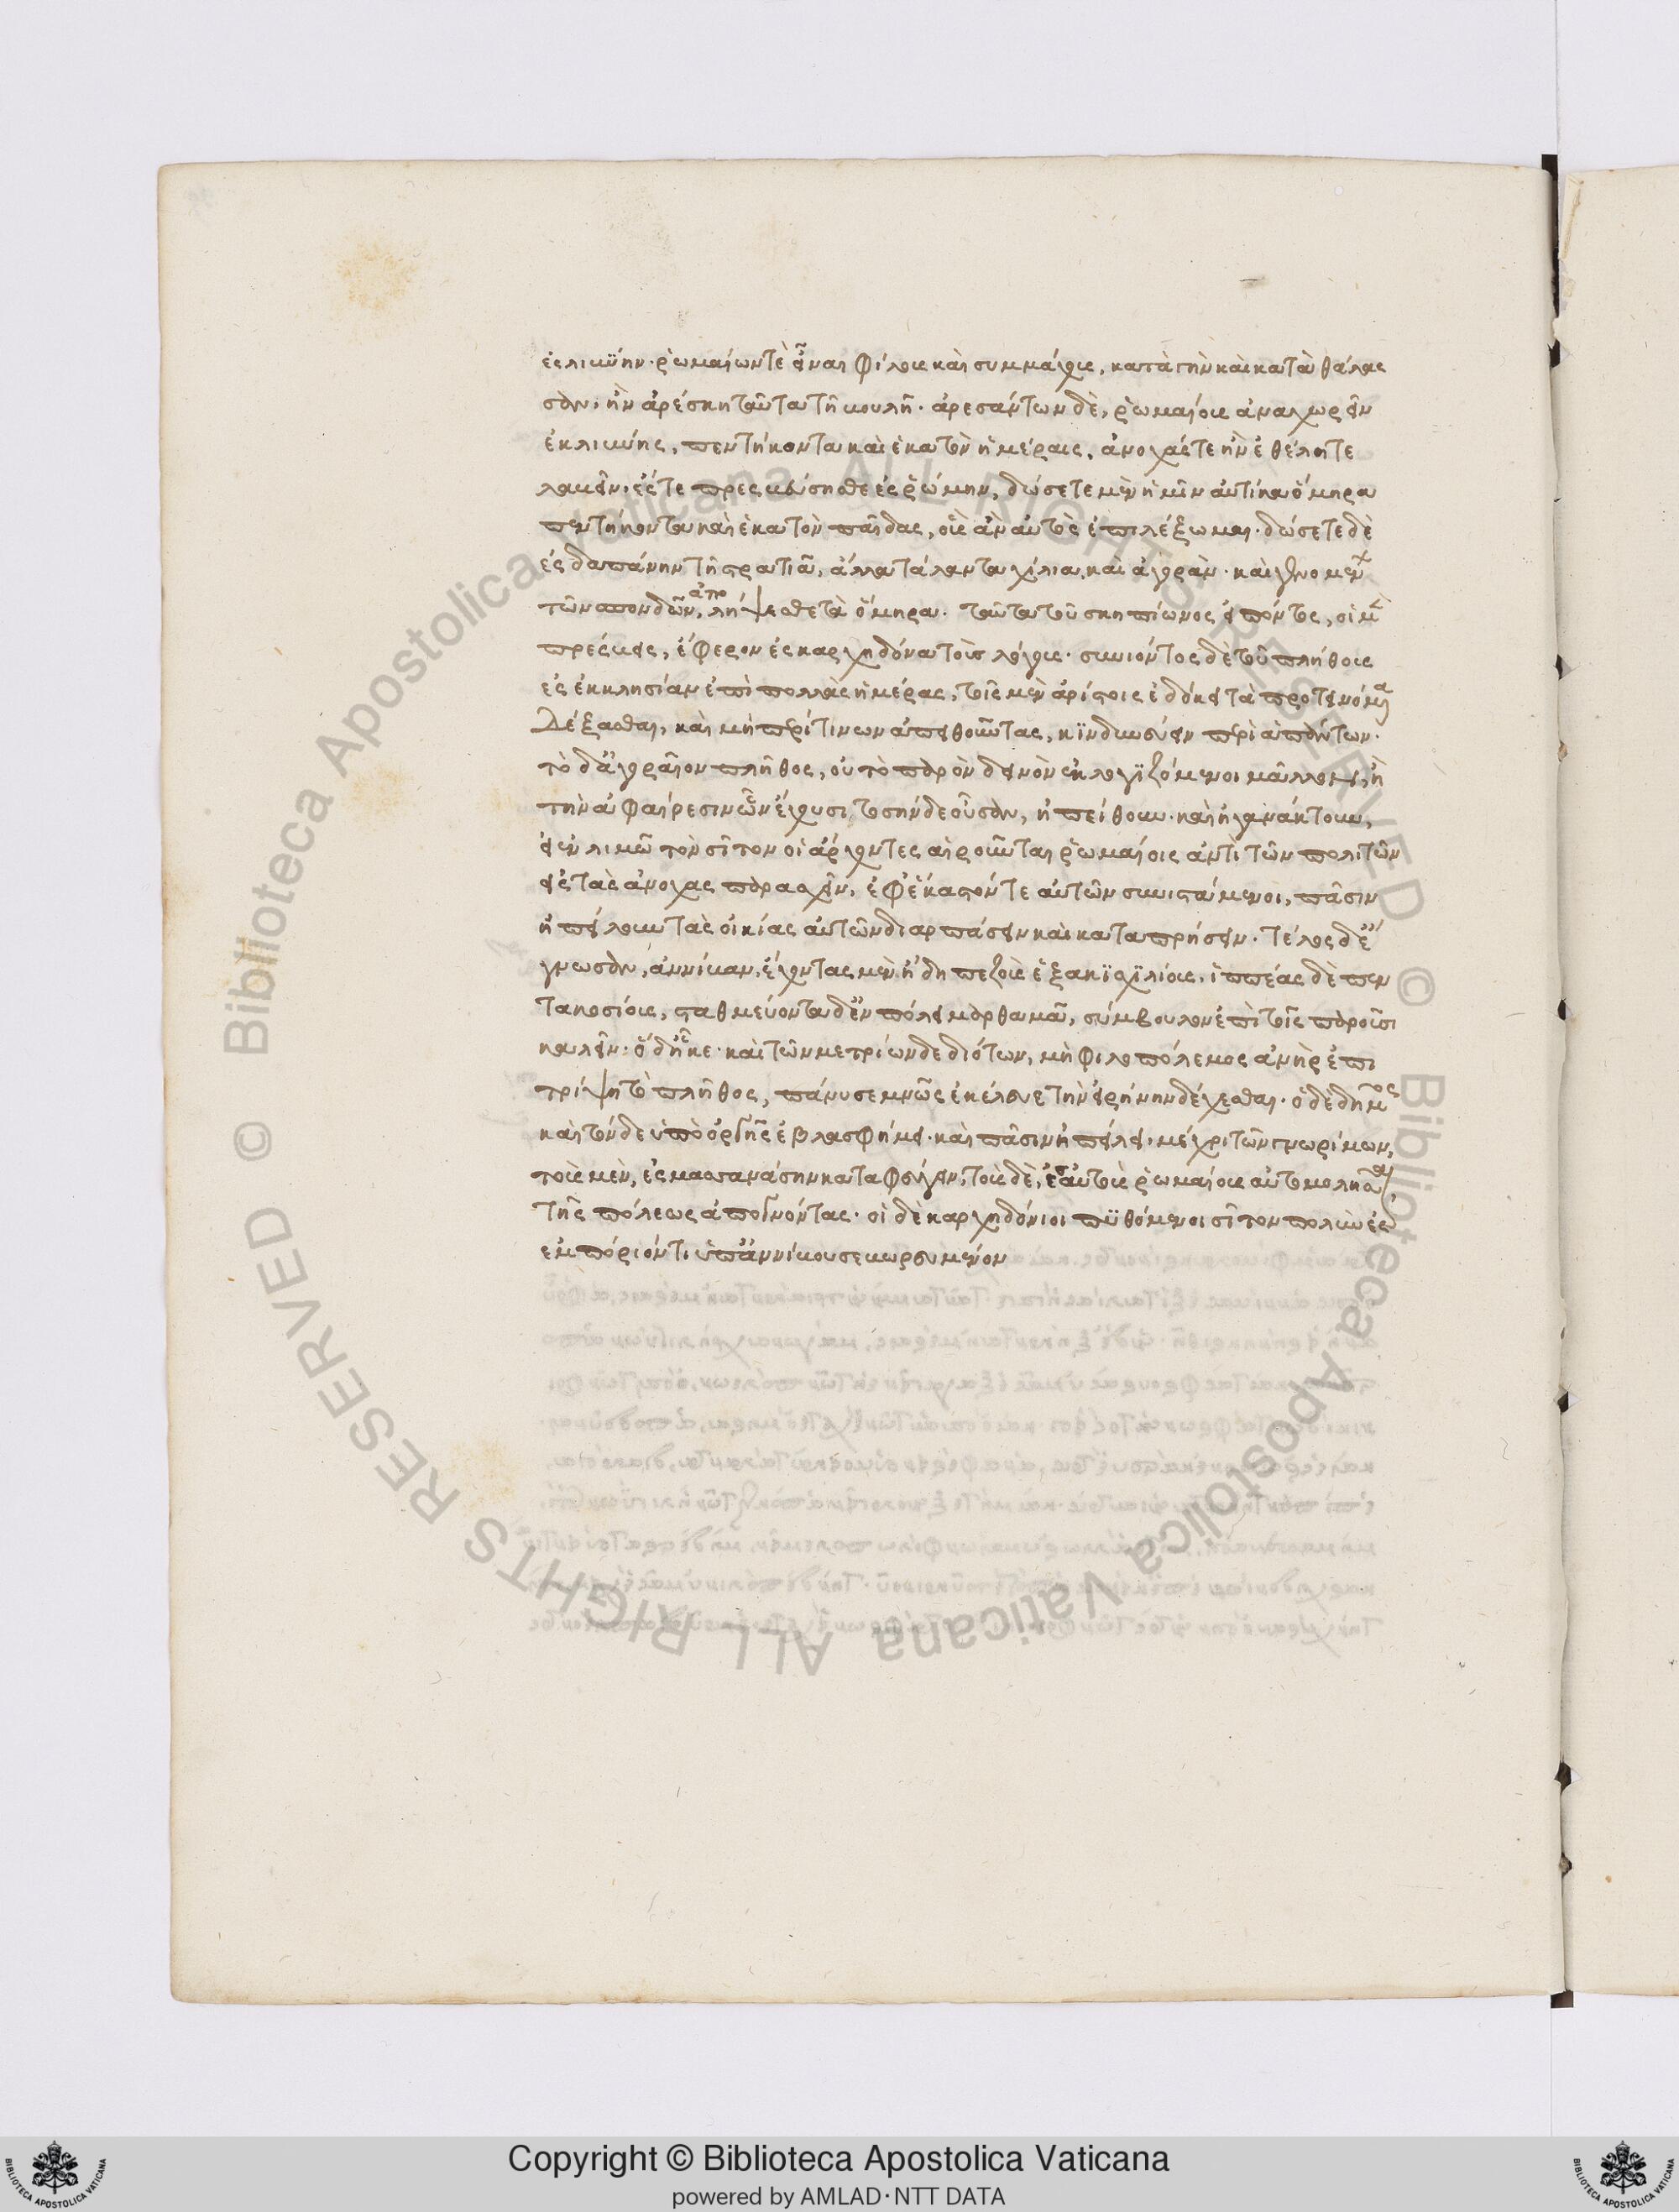 ἐς λιβύην· ῥωμαίων τὲ εἶναι φίλους καὶ συμμάχους, κατὰ γῆν καὶ κατὰ θάλας
σαν, ἢν ἀρέσκῃ ταῦτα τῇ βουλῇ· ἀρεσάντων δὲ, ῥωμαίους ἀναχωρεῖν
ἐκ λιβύης, πεντήκοντα καὶ ἑκατὸν ἡμέραις. ἀνοχάς τε ἢν ἐθέλητε
λαβεῖν, ἔς τε πρεσβεύσησθε ἐς ῥώμην, δώσετε μὲν ἡμῖν αὐτίκα ὅμηρα
πεντήκοντα καὶ ἑκατὸν παῖδας, οὓς ἂν αὐτὸς ἐπιλέξωμαι· δώσετε δὲ
ἐς δαπάνην τῇ στρατιᾷ, ἄλλα τάλαντα χίλια καὶ ἀγορὰν· καὶ γενομένων
τῶν σπονδῶν, ἀπολήψεσθε τὰ ὅμηρα. ταῦτα τοῦ σκηπίωνος εἰπόντος, οἱ μὲν
πρέσβεις, ἔφερον ἐς καρχηδόνα τοὺς λόγους· συνιόντος δὲ τοῦ πλήθους
ἐς ἐκκλησίαν ἐπὶ πολλὰς ἡμέρας, τοῖς μὲν ἀρίστοις ἐδόκει τὰ προτεινόμενα
δέξασθαι, καὶ μὴ περί τινων ἀπειθοῦντας, κινδυνεύειν περὶ ἁπάντων.
τὸ δ' ἀγοραῖον πλῆθος, οὐ τὸ παρὸν δεινὸν ἐκλογιζόμενοι μᾶλλον, ἢ
τὴν ἀφαίρεσιν ὧν ἔχουσι τοσήνδε οὖσαν, ἠπείθουν· καὶ ἠγανάκτουν,
εἰ ἐν λιμῷ τὸν σῖτον οἱ ἄρχοντες αἱροῦνται ῥωμαίοις ἀντὶ τῶν πολιτῶν
εἰς τὰς ἀνοχὰς παρασχεῖν, ἐφ' ἕκαστόν τε αὐτῶν συνιστάμενοι, πᾶσιν
ἠπείλουν τὰς οἰκίας αὐτῶν διαρπάσειν καὶ καταπρήσειν. τέλος δ' ἔ
γνωσαν, ἀννίβαν, ἔχοντας μὲν ἤδη πεζοὺς ἑξακισχιλίους, ἱππέας δὲ πεν
τακοσίους, σταθμεύοντα δ' ἐν πόλει μαρθαμᾷ, σύμβουλον ἐπὶ τοῖς παροῦσι
καλεῖν· ὁ δ' ἧκε· καὶ τῶν μετρίων δεδιότων, μὴ φιλοπόλεμος ἀνὴρ ἐπι
τρίψῃ τὸ πλῆθος, πάνυ σεμνῶς ἐκέλευε τὴν εἰρήνην δέχεσθαι. ὁ δὲ δῆμος
καὶ τόνδε ὑπὸ ὀργῆς ἐβλασφήμει· καὶ πᾶσιν ἠπείλει· μέχρι τῶν γνωρίμων,
τοὺς μὲν, ἐς μασσανάσσην καταφυγεῖν, τοὺς δὲ, ἐς αὐτοὺς ῥωμαίους αὐτομολῆσαι
τῆς πόλεως ἀπογνόντας. οἱ δὲ καρχηδόνιοι πυθόμενοι σῖτον πολὺν ἐς
ἐμπόριόν τι ὑπ' ἀννίβου σεσωρευμένον